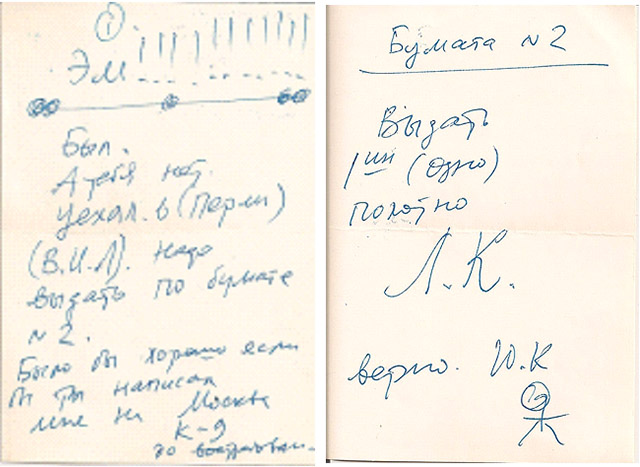 ①
ЭМ
Был.
А тебя нет.
Уехал. в (Перми)
(В.И.Л). Надо
выдать по бумате
N 2.
Было бы хорошо если
б ты написал
мне на Москва
К-9
до
Бумата N 2
Выдать
1 ин (одно)
полотно
Л.К.
верно. Ю.К